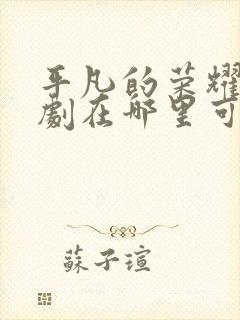 平凡的荣耀
劇在哪里可
蘇子瑄